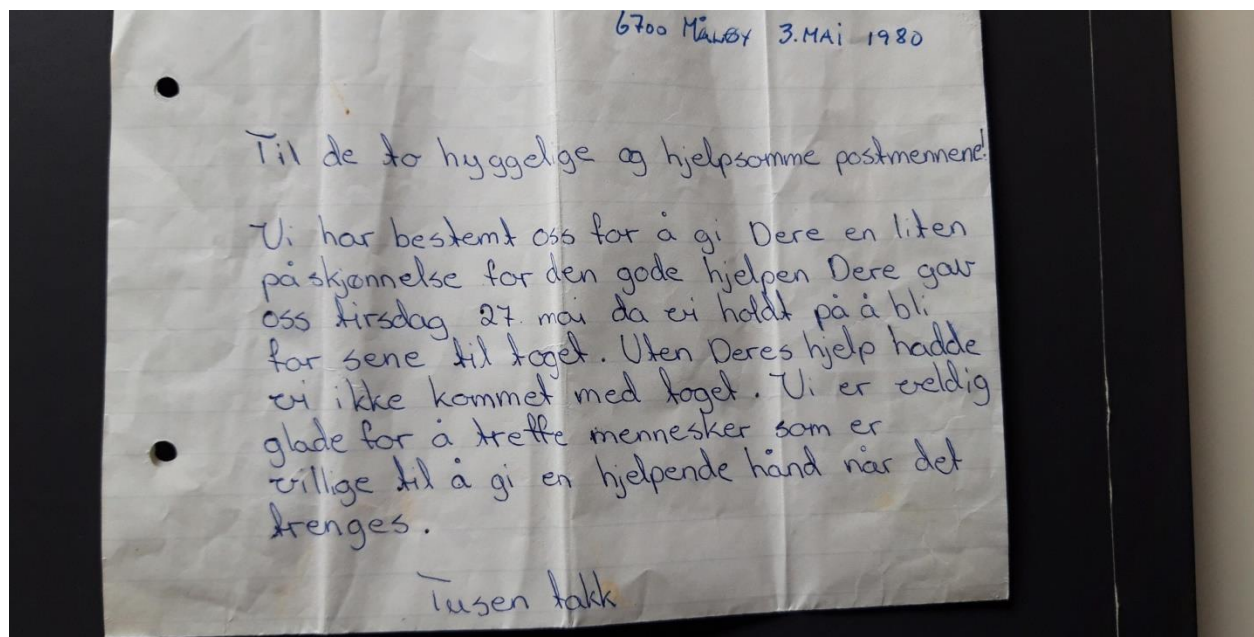 6700 Måløy 3. MAI 1980
Til de to hyggelige og hjelpsomme postmennene!
Vi har bestemt oss for å gi Dere en liten
påskjønnelse for den gode hjelpen Dere gav
oss tirsdag 27. mai da vi holdt på å bli
for sene til toget. Uten Deres hjelp hadde
vi ikke kommet med toget. Vi er veldig
glade for å treffe mennesker som er
villige til å gi en hjelpende hånd når det
trenges.
Tusen takk